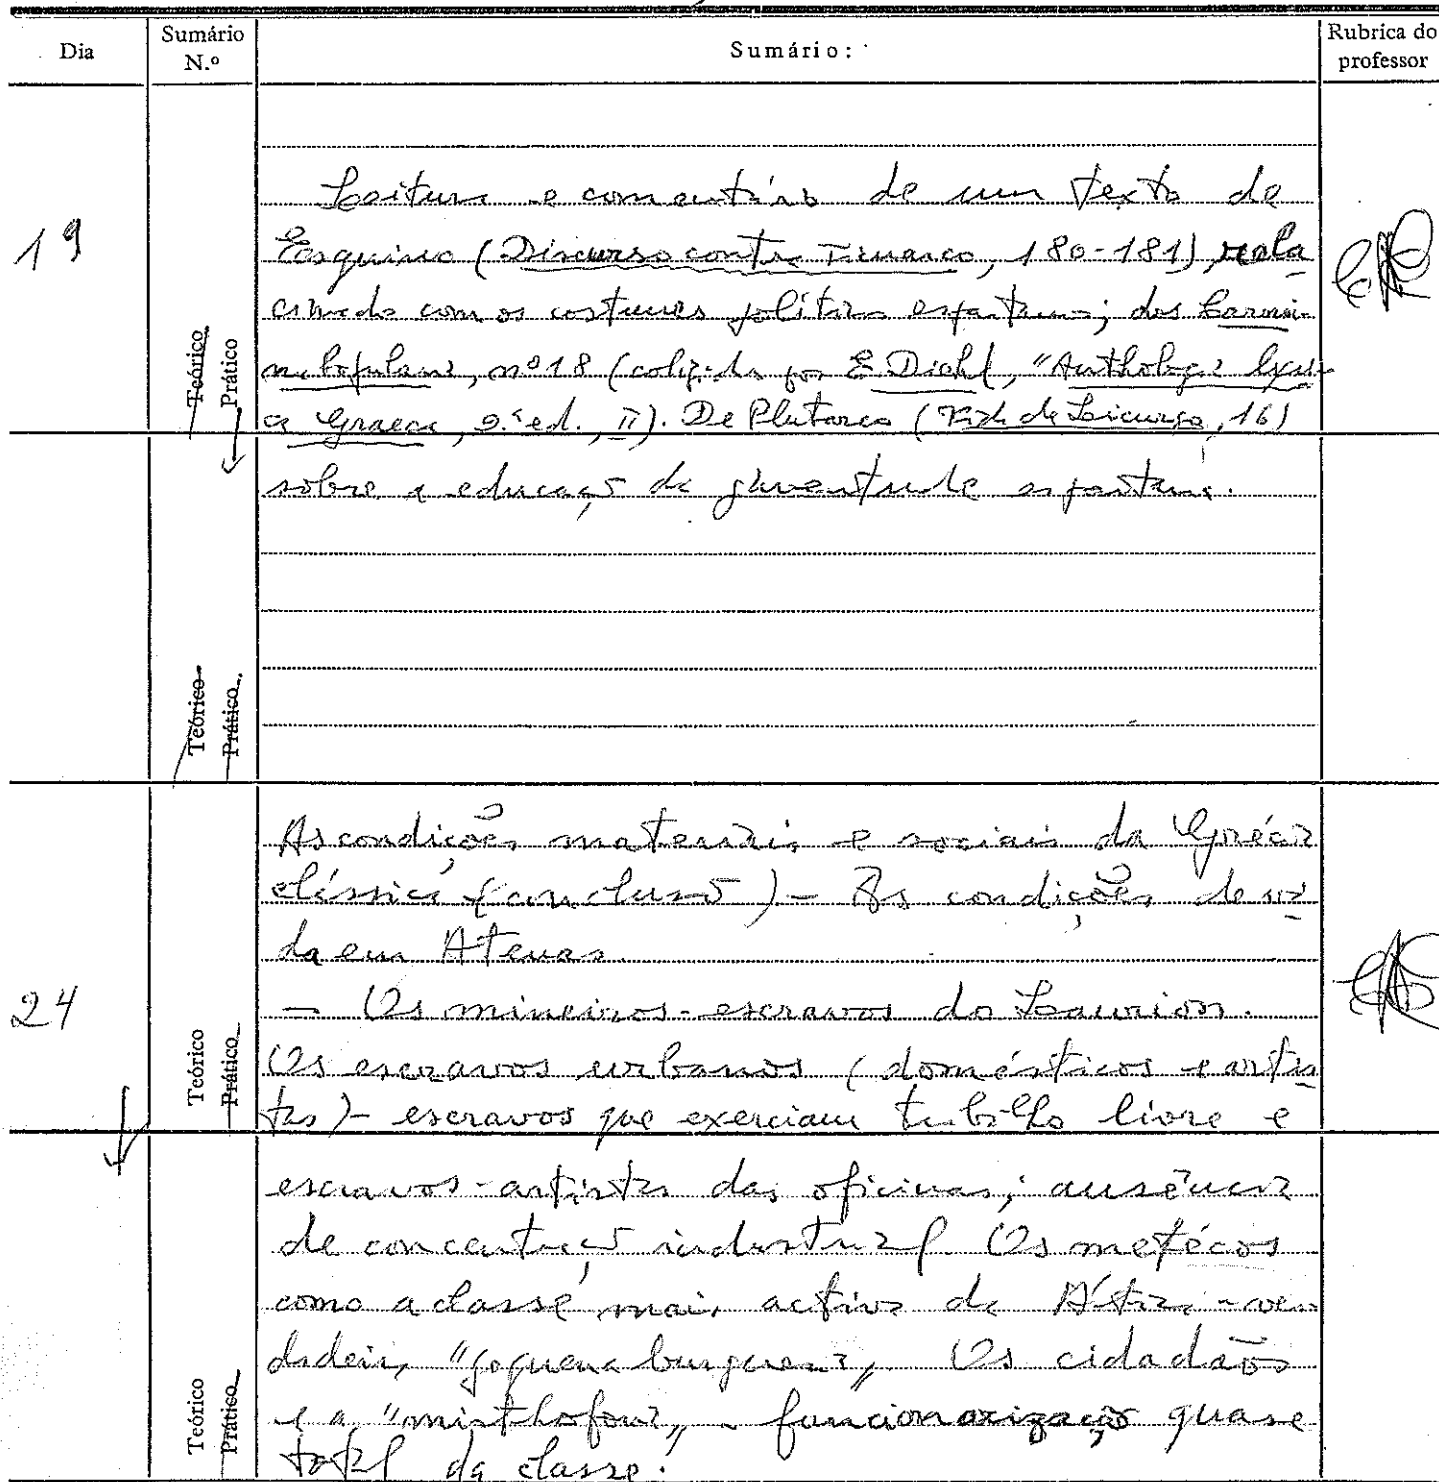 Dia
Sumário N.º
Sumário:
Rubrica do professor
19
Teórico
Prático
Leitura e comentário de um texto de
Esquines (Discurso contra Timarco, 180-181), rela
cionado com os costumes políticos espartanos; dos Carmi-
na Popularia, nº 18 (coligida por E. Diehl, "Anthologia Lyri-
ca Graeca, 2.ª ed., II). De Plutarco (Vida de Licurgo, 16)
sobre a educação da juventude espartana.
Teórico
Prático
24
Teórico
Prático
As condições materiais e sociais da Grécia
clássica (conclusão) - As condições de vi
da em Atenas.
- Os mineiros-escravos do Laurion.
Os escravos urbanos (domésticos e artis
tas) - escravos que exerciam trabalho livre e
Teórico
Prático
escravos-artistas das oficinas; ausência
de concentração industrial. Os metécos
como a classe mais activa da Ática - ver
dadeira "pequena burguesia". Os cidadãos
e a "misthoforia" - funcionarização quase
total da classe.